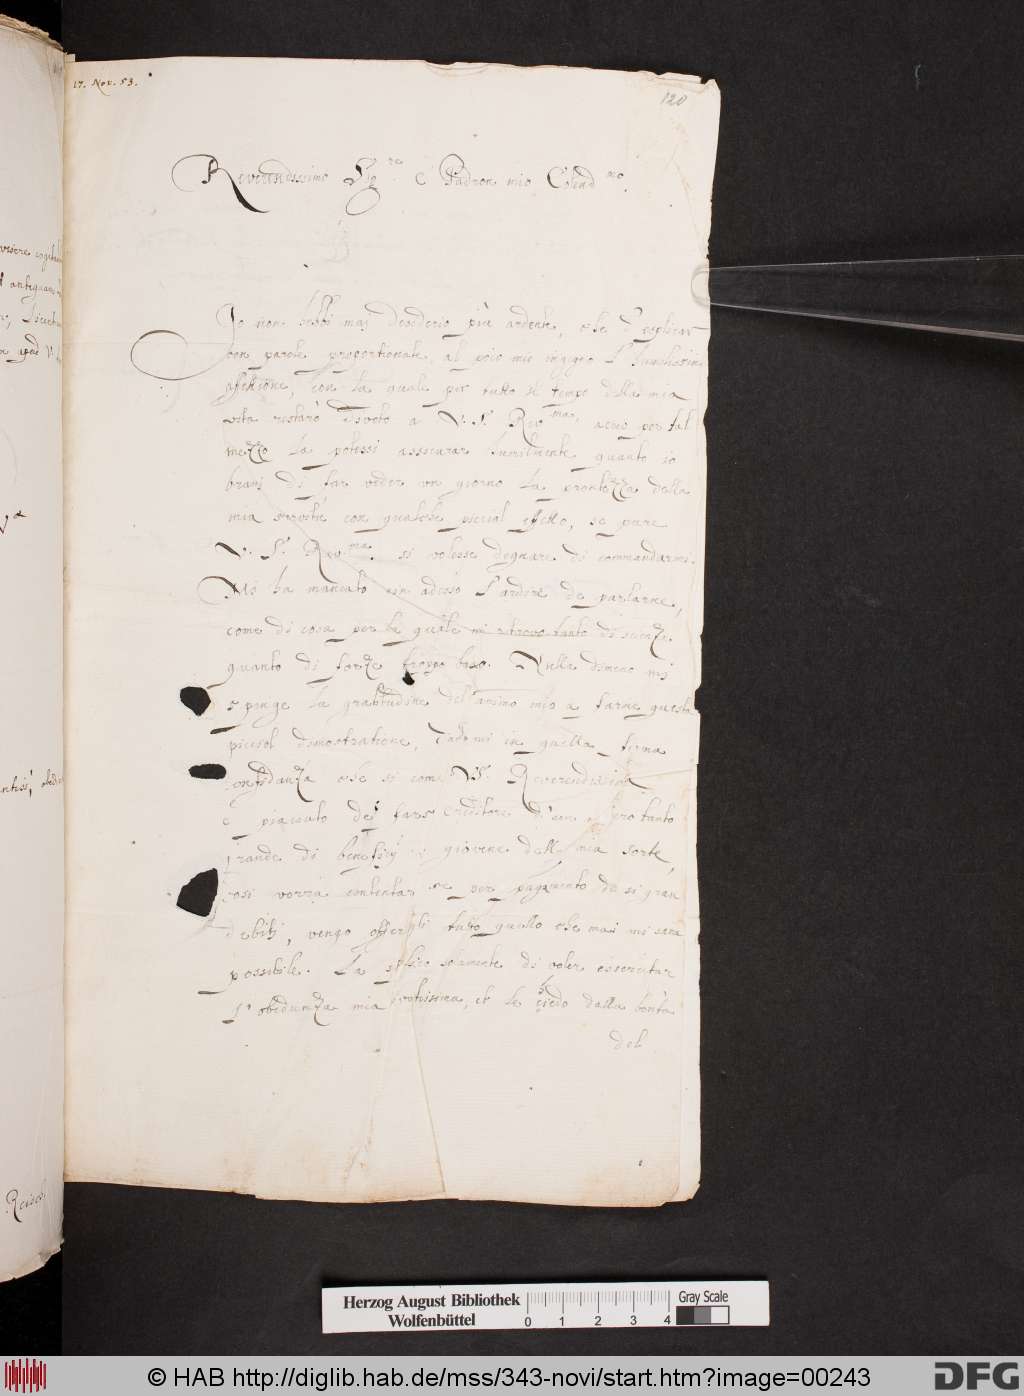 17. Nov. 53.
120
Reverendissimo Sig.re e Padron mio Colend.mo
Io non hebbi mai desiderio più ardente, che d' esplicar
con parole proportionate, al poco mio ingegno
affettione, con la quale per tutto il tempo della mia
vita restarò divoto a V. S. Rev.ma, acciò per tal
mezzo la potessi assicurar humilmente quanto io
brami di far veder un giorno la prontezza della
mia servitù con qualche picciol effetto, se pure
V. S. Rev.ma si volesse degnare di commandarmi.
Mi ha mancato sin adesso l'ardire de parlarne,
come di cosa per la quale mi ritrovo tanto di scienza
quanto di forze troppo basso. Nulla dimeno mi
spinge la gratitudine del animo mio a farne questa
picciol dimostratione, in quella ferma
confidanza che si come V.S. Reverendissima
è piaciuto de farsi creditore d'un tanto
grande di beneficij giovene della mia sorte,
cosi vorrà contentarse per pagamento de si gran
debiti, vengo offerirli tutto quello che mai mi sera
possibile. La solamente di voler essercitar
l'obedienza mia et le dalla bontà
del
Herzog August Bibliothek
Wolfenbüttel
0 1 2 3 4
Gray Scale
© HAB http://diglib.hab.de/mss/343-novi/start.htm?image=00243
DFG